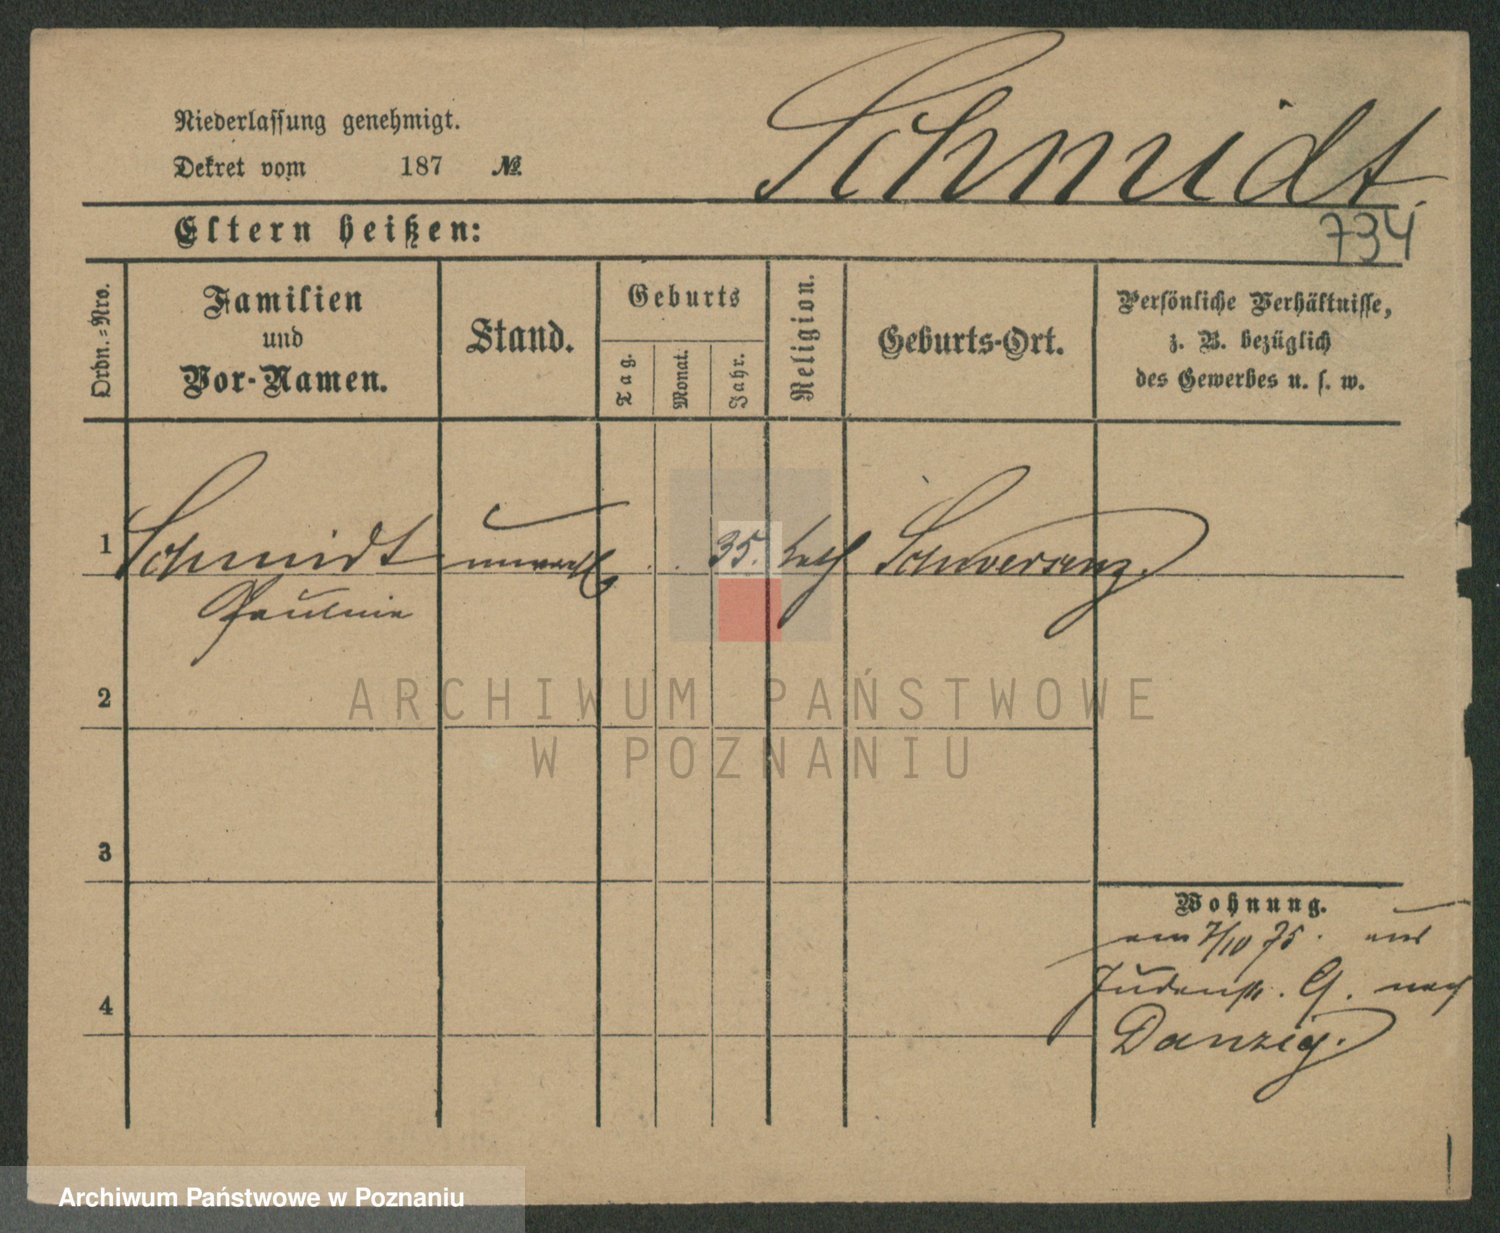 Schmidt.
Niederlassung genehmigt.
Dekret vom 187 №
Eltern heißen:
734
Ordn.-Nro.
Familien
und
Vor-Namen.
Stand.
Geburts
Tag.
Monat.
Jahr.
Religion.
Geburts-Ort.
Persönliche Verhältnisse,
z. B. bezüglich
des Gewerbes u. s. w.
1 Schmidt unverh 35. kath Schwersenz.
Pauline
2
3
Wohnung.
am 7/10 75. aus
Judenstr. 9. nach
Danzig.
4
ARCHIWUM PAŃSTWOWE
W POZNANIU
Archiwum Państwowe w Poznaniu